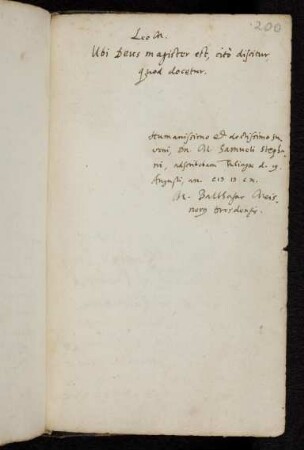 200
Leo M.
Ubi Deus magister est, citò discitur
quod docetur.
Humanissimo et doctissimo ju
veni, Dn. M. Samueli Stepha
ni, adscribebam Tubingæ d. 19
Augusti, an. CIↃ IↃ C X.
M. Balthasar Meis
nerus Dresdensis.